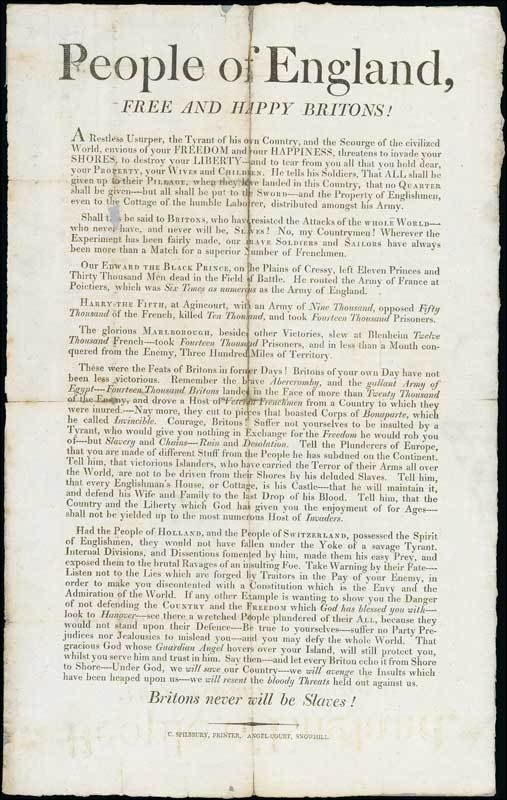 People of England,
FREE AND HAPPY BRITONS!
A Restless Usurper, the Tyrant of his own Country, and the Scourge of the civilized
World, envious of your FREEDOM and your HAPPINESS, threatens to invade your
SHORES, to destroy your LIBERTY—and to tear from you all that you hold dear,
your PROPERTY, your WIVES and CHILDREN. He tells his Soldiers, That ALL shall be
given up to their PILLAGE, when they have landed in this Country, that no QUARTER
shall be given—but all shall be put to the SWORD—and the Property of Englishmen,
even to the Cottage of the humble Labourer, distributed amongst his Army.
Shall it be said to BRITONS, who have resisted the Attacks of the WHOLE WORLD—
who never have, and never will be, SLAVES! No, my Countrymen! Wherever the
Experiment has been fairly made, our BRAVE SOLDIERS and SAILORS have always
been more than a Match for a superior Number of Frenchmen.
Our EDWARD THE BLACK PRINCE, on the Plains of Cressy, left Eleven Princes and
Thirty Thousand Men dead in the Field of Battle. He routed the Army of France at
Poictiers, which was Six Times as numerous as the Army of England.
HARRY THE FIFTH, at Agincourt, with an Army of Nine Thousand, opposed Fifty
Thousand of the French, killed Ten Thousand, and took Fourteen Thousand Prisoners.
The glorious MARLBOROUGH, besides other Victories, slew at Blenheim Twelve
Thousand French—took Fourteen Thousand Prisoners, and in less than a Month con-
quered from the Enemy, Three Hundred Miles of Territory.
These were the Feats of Britons in former Days! Britons of your own Day have not
been less victorious. Remember the brave Abercromby, and the gallant Army of
Egypt—Fourteen Thousand Britons landed in the Face of more than Twenty Thousand
of the Enemy, and drove a Host of Veteran Frenchmen from a Country to which they
were inured.—Nay more, they cut to pieces that boasted Corps of Bonaparte, which
he called Invincible. Courage, Britons! Suffer not yourselves to be insulted by a
Tyrant, who would give you nothing in Exchange for the Freedom he would rob you
of—but Slavery and Chains—Ruin and Desolation. Tell the Plunderers of Europe,
that you are made of different Stuff from the People he has subdued on the Continent.
Tell him, that victorious Islanders, who have carried the Terror of their Arms all over
the World, are not to be driven from their Shores by his deluded Slaves. Tell him,
that every Englishman's House, or Cottage, is his Castle—that he will maintain it,
and defend his Wife and Family to the last Drop of his Blood. Tell him, that the
Country and the Liberty which God has given you the enjoyment of for Ages—
shall not be yielded up to the most numerous Host of Invaders.
Had the People of HOLLAND, and the People of SWITZERLAND, possessed the Spirit
of Englishmen, they would not have fallen under the Yoke of a savage Tyrant.
Internal Divisions, and Dissentions fomented by him, made them his easy Prey, and
exposed them to the brutal Ravages of an insulting Foe. Take Warning by their Fate—
Listen not to the Lies which are forged by Traitors in the Pay of your Enemy, in
order to make you discontented with a Constitution which is the Envy and the
Admiration of the World. If any other Example is wanting to show you the Danger
of not defending the COUNTRY and the FREEDOM which God has blessed you with—
look to Hanover—see there a wretched People plundered of their ALL, because they
would not stand upon their Defence—Be true to yourselves—suffer no Party Pre-
judices nor Jealousies to mislead you—and you may defy the whole World. That
gracious God whose Guardian Angel hovers over your Island, will still protect you,
whilst you serve him and trust in him. Say then—and let every Briton echo it from Shore
to Shore—Under God, we will save our Country—we will avenge the Insults which
have been heaped upon us—we will resent the bloody Threats held out against us.
Britons never will be Slaves!
C. SPILSBURY, PRINTER, ANGEL-COURT, SNOWHILL.